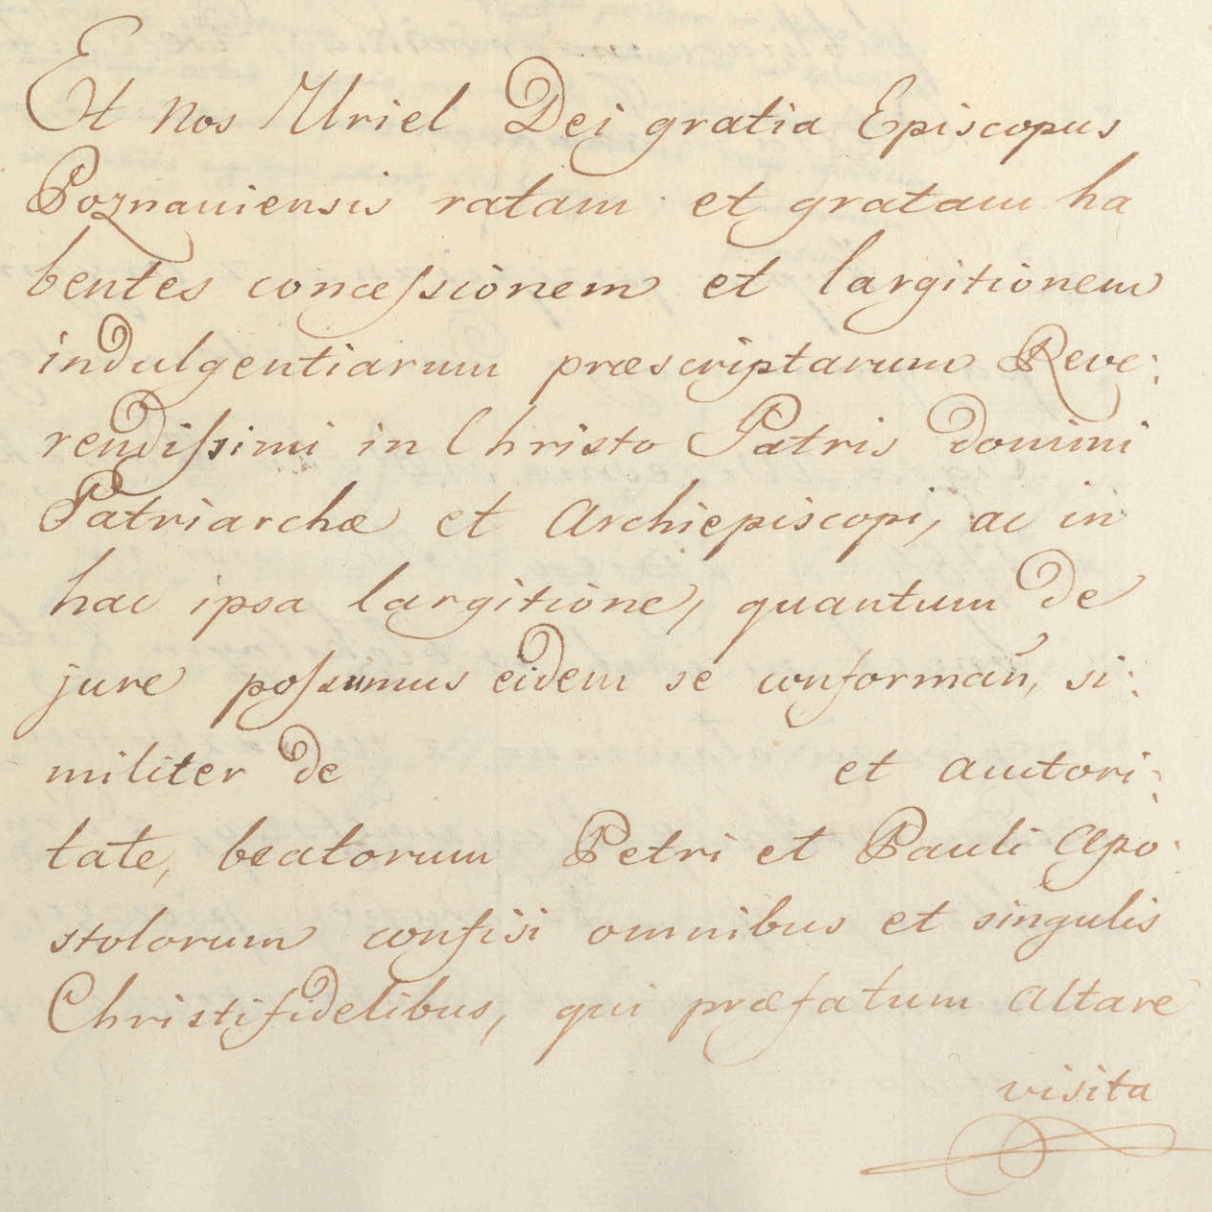 Et Nos Uriel Dei gratia Episcopus
Poznaniensis ratam et gratam ha
bentes conceſsionem et largitionem
indulgentiarum præscriptarum Reve:
rendiſsimi in Christo Patris Domini
Patriarchæ et Archiepiscopi, ac in
hac ipsa largitione, quantum de
jure poſsumus eidem se conformañ, si:
militer de et auctori:
tate, beatorum Petri et Pauli Apo:
stolorum confisi omnibus et singulis
Christifidelibus, qui præfatum altare
visita